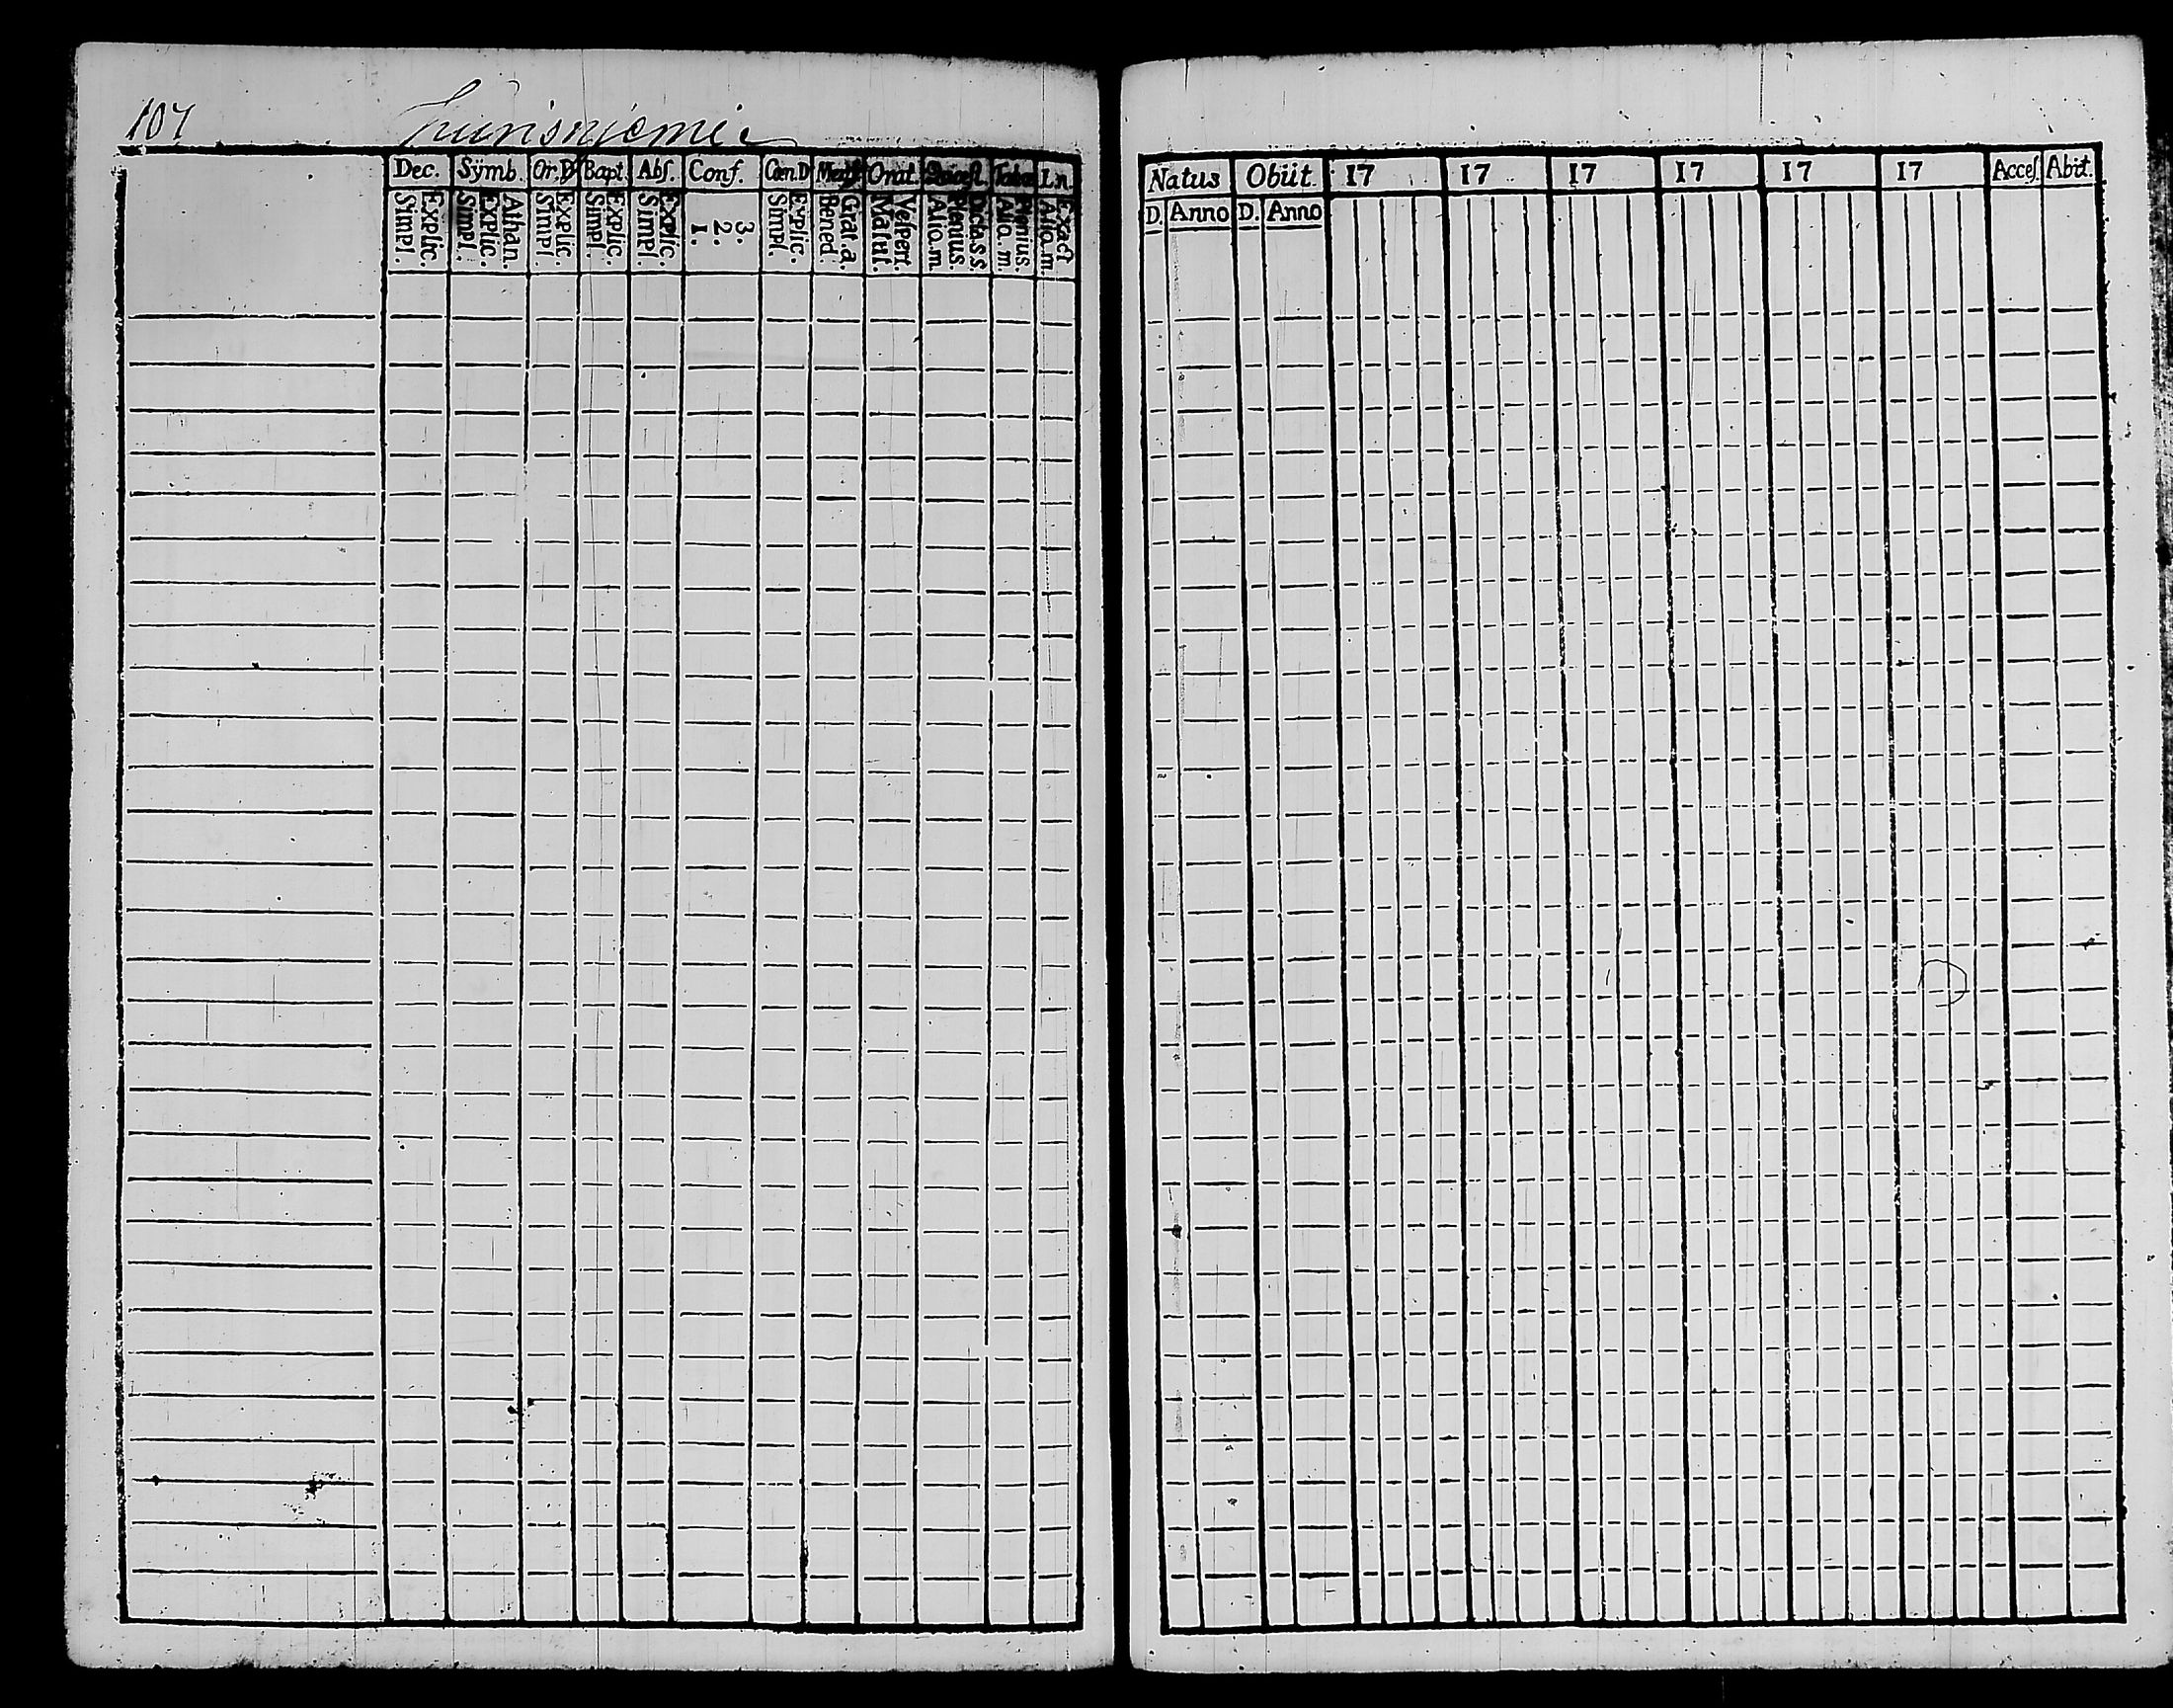 107
Dec. Symb. Or.D Bapt. Abs. Conf. Cœn.D Mens. Orat. Quæst. Tabœ Ln.
Explic. Simpl. Athan. Explic. Simpl. Explic. Simpl. Explic. Simpl. Explic. Simpl. 3. 2. 1. Explic. Simpl. Grat. a. Bened. Vespert. Matut. Dicta.s.s. Plenius. Aliq.m. Plenius. Aliq.m. Exact Aliq.m.
Natus Obiit. 17 17 17 17 17 17 Acces. Abiit.
D. Anno D. Anno